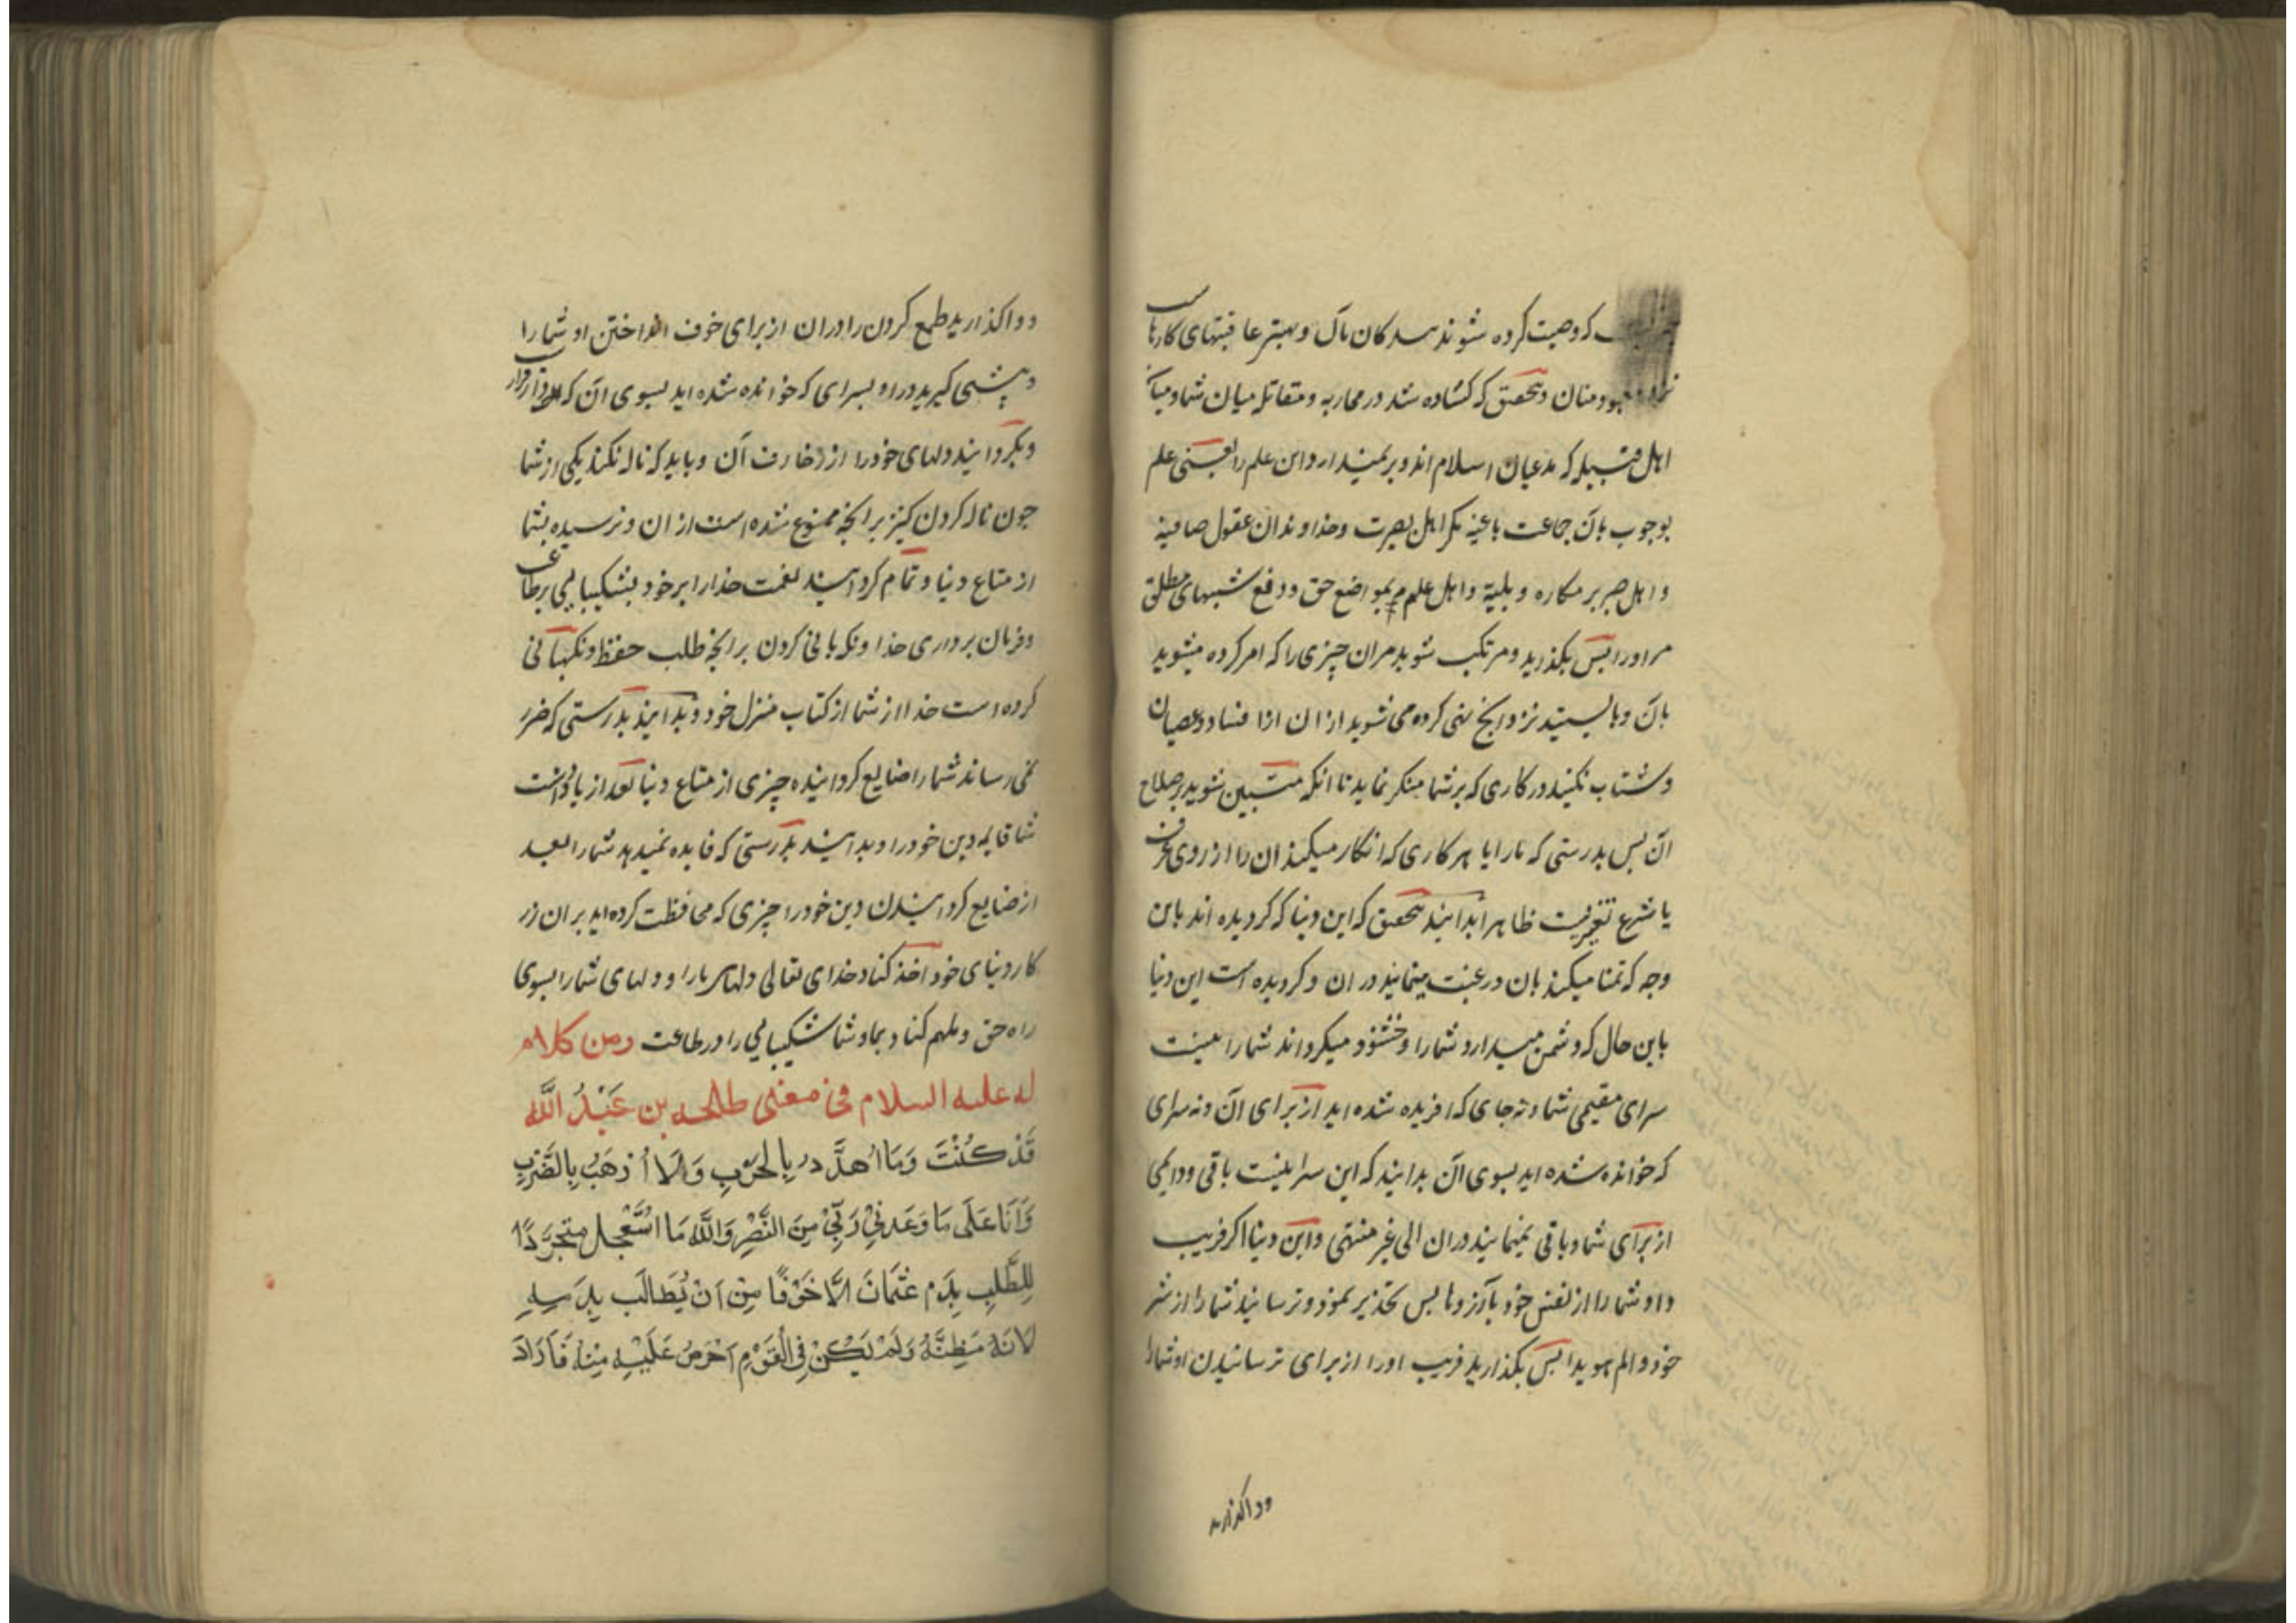 که وصیت کرده شوند بندکان بآن و بهتر عاقبتهای کارهاست
نزد خدا و بتحقیق که کشاده شد در محاربه و مقاتله میان شما و میان
اهل قبیله که مدعیان اسلام اند و برنمیدارد این علم را یعنی علم
بوجوب بآن جماعت باغیه مکر اهل بصیرت و خداوندان عقول صافیه
و اهل صبر بر مکاره و بلیه و اهل علم بمواضع حق و دفع شبهای مطلق
مر او را پس بکذرید و مرتکب شوید مر ان چیزی را که امر کرده میشوید
بآن و بایستید نزد انچ نهی کرده می شوید از ان اذا فساد و عصیان
و شتاب نکنید در کاری که بر شما منکر نماید تا انکه متبین شوید بر صلاح
آن پس بدرستی که ما را با هر کاری که انکار میکنید ان را از روی عرف
یا شرع تغیریست ظاهر بدانید بتحقیق که این دنیا که کردیده اند باین
وجه که تمنا میکنید بان و رغبت مینمایید در ان و کردیده است این دنیا
باین حال که دشمن میدارد شما را و خشنود میکرداند شما را نیست
سرای مقیمی شما و نه جای که افریده شده اید از برای آن و نه سرای
که خوانده شده اید بسوی آن بدانید که این سرا نیست باقی و دایمی
از برای شما و باقی نمیمانید در ان الی غیر منتهی و این دنیا اکر فریب
داد شما را از نفس خود بآرزوها پس تحذیر نمود و ترسانید شما را از شر
خود و الم هویدا پس بکذارید فریب او را از برای ترسانیدن او شما را
و واکذارید
و واکذارید طمع کردن را در ان از برای خوف انداختن او شما را
و پیشی کیرید در او بسرای که خوانده شده اید بسوی آن که دار قرار
و بکردانید دلهای خود را از زخارف آن و باید که ناله نکند یکی از شما
چون ناله کردن کنیز بر انچه ممنوع شده است از ان و نرسیده بشما
از متاع دنیا و تمام کردانید نعمت خدا را بر خود بشکیبایی بر طاعت
و فرمان برداری خدا و نکهبانی کردن بر انچه طلب حفظ و نکهبانی
کرده است خدا از شما از کتاب منزل خود و بدانید بدرستی که ضرر
نمی رساند شما را ضایع کردانیده چیزی از متاع دنیا بعد از یادداشت
شما قایمه دین خود را و بدانید بدرستی که فایده نمیدهد شما را بعد
از ضایع کردانیدن دین خود را چیزی که محافظت کرده اید بر ان از
کار دنیای خود اخذ کناد خدای تعالی دلهای ما را و دلهای شما را بسوی
راه حق و ملهم کناد بما و شما شکیبایی را در طاعت ومن کلام
له علیه السلام فی معنی طلحه بن عَبْدُ الله
قَدْ كُنْتَ وَمَا اُهدَّد بِالحَرْبِ وَلَا اُرْهَبُ بِالضَّرْبِ
وَاَنَا عَلَى مَا وَعَدَنِيْ رَبِّيْ مِنَ النَّصْرِ وَاللهِ مَا اسْتَعْجل متَجَرِّدًا
لِلطَّلَبِ بِدَمِ عُثْمَانَ اِلَّا خَوْفًا مِنْ اَنْ يُطَالَبَ بِدَمِهِ
لِاَنَّهُ مَظِنَّتُهُ وَلَمْ يَكُنْ فِي الْقَوْمِ اَحْرَصُ عَلَيْهِ مِنْهُ فَاَرَادَ